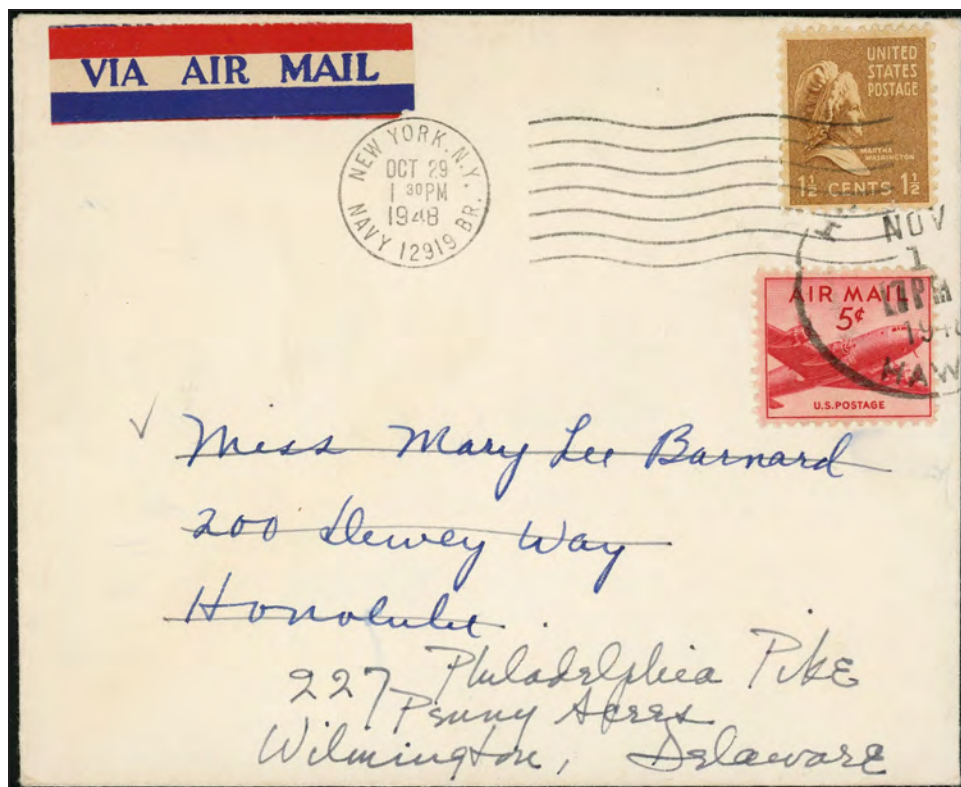 VIA AIR MAIL
NEW YORK, N.Y.
OCT 29
1 30 PM
1948
NAVY 12919 BR.
UNITED
STATES
POSTAGE
MARTHA
WASHINGTON
1½ CENTS 1½
NOV
1
PM
1948
HAW
AIR MAIL
5¢
U.S. POSTAGE
Miss Mary Lee Barnard
200 Dewey Way
Honolulu
227 Philadelphia Pike
Penny Acres
Wilmington, Delaware